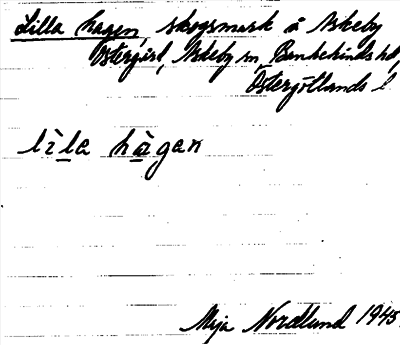 Lilla hagen, skogsmark å Askeby
Östergård, Askeby sn, Bankekinds hd,
Östergötlands l
lìla hàgan
Maja Nordlund 1945.